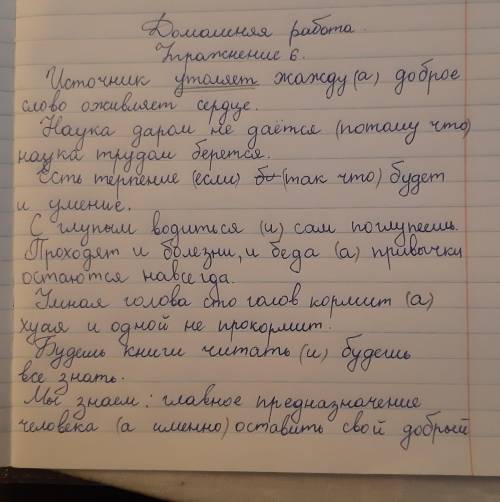 Домашняя работа.
Упражнение 6.
Источник утоляет жажду (а) доброе
слово оживляет сердце.
Наука даром не даётся (потому что)
наука трудом берется.
Есть терпение (если) (так что) будет
и умение.
С глупым водиться (и) сам поглупеешь.
Проходят и болезни, и беда (а) привычки
остаются навсегда.
Умная голова сто голов кормит (а)
худая и одной не прокормит.
Будешь книги читать (и) будешь
все знать.
Мы знаем: главное предназначение
человека (а именно) оставить свой добрый